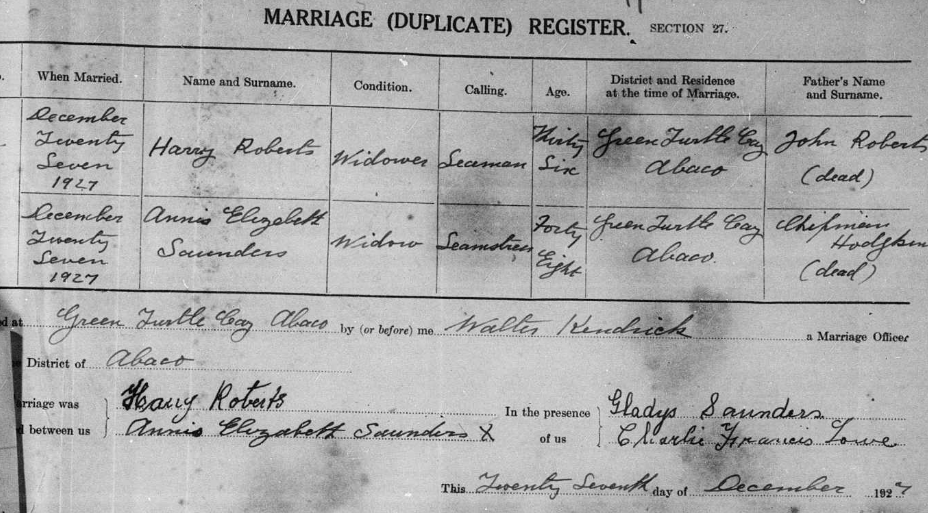 MARRIAGE (DUPLICATE) REGISTER. SECTION 27.
When Married. Name and Surname. Condition. Calling. Age. District and Residence at the time of Marriage. Father's Name and Surname.
December Twenty Seven 1927 Harry Roberts Widower Seaman Thirty Six Green Turtle Cay Abaco John Roberts (dead)
December Twenty Seven 1927 Annis Elizabeth Saunders Widow Seamstress Forty Eight Green Turtle Cay Abaco. Chipman Hodgkin (dead)
at Green Turtle Cay Abaco by (or before) me Walter Kendrick a Marriage Officer
District of Abaco
arriage was Harry Roberts In the presence Gladys Saunders
between us Annis Elizabeth Saunders X of us Charlie Francis Lowe
This Twenty Seventh day of December 1927